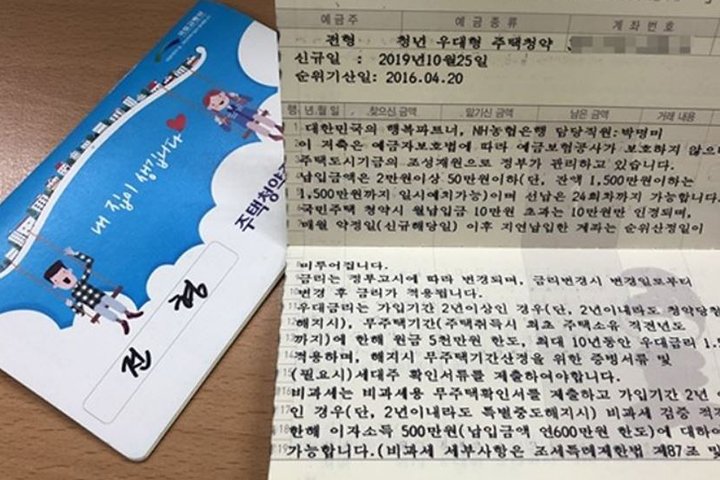 내 집이 생깁니다
주택청약
전 형
예금주 예금종류 계좌번호
전형 청년 우대형 주택청약
신규일 : 2019년10월25일
순위기산일: 2016.04.20
행 년.월일 찾으신 금액 맡기신 금액 남은 금액 거래 내용
대한민국의 행복파트너, NH농협은행 담당직원:박명미
이 저축은 예금자보호법에 따라 예금보험공사가 보호하지 않으
주택도시기금의 조성재원으로 정부가 관리하고 있습니다.
납입금액은 2만원이상 50만원이하(단, 잔액 1,500만원이하는
1,500만원까지 일시예치가능)이며 선납은 24회차까지 가능합니다.
국민주택 청약시 월납입금 10만원 초과는 10만원만 인정되며,
매월 약정일(신규해당일) 이후 지연납입한 계좌는 순위산정일이
미루어집니다.
금리는 정부고시에 따라 변경되며, 금리변경시 변경일로부터
변경 후 금리가 적용됩니다.
우대금리는 가입기간 2년이상인 경우(단, 2년이내라도 청약당첨
해지시), 무주택기간(주택취득시 최초 주택소유 직전년도
까지)에 한해 원금 5천만원 한도, 최대 10년동안 우대금리 1.5
적용하며, 해지시 무주택기간산정을 위한 증빙서류 및
(필요시)세대주 확인서류를 제출하여야합니다.
비과세는 비과세용 무주택확인서를 제출하고 가입기간 2년
인 경우(단, 2년이내라도 특별중도해지시) 비과세 검증 적
한해 이자소득 500만원(납입금액 연600만원 한도)에 대하여
가능합니다.(비과세 세부사항은 조세특례제한법 제87조 및